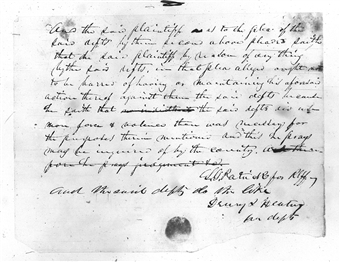 And the said plaintiff as to the plea of the
said defts by them second above pleaded saith
that the said plaintiff by reason of any thing
by the said defts, in that plea alleged ought not
to be barred of having or maintaining his aforesaid
action thereof against them the said defts because
he saith that the said defts did use
more force & violence than was necessary for
the purposes therein mentioned and this he prays
may be inquired of by the country.
he prays judgment &c
for Plff
And the said defts do the like
for deft